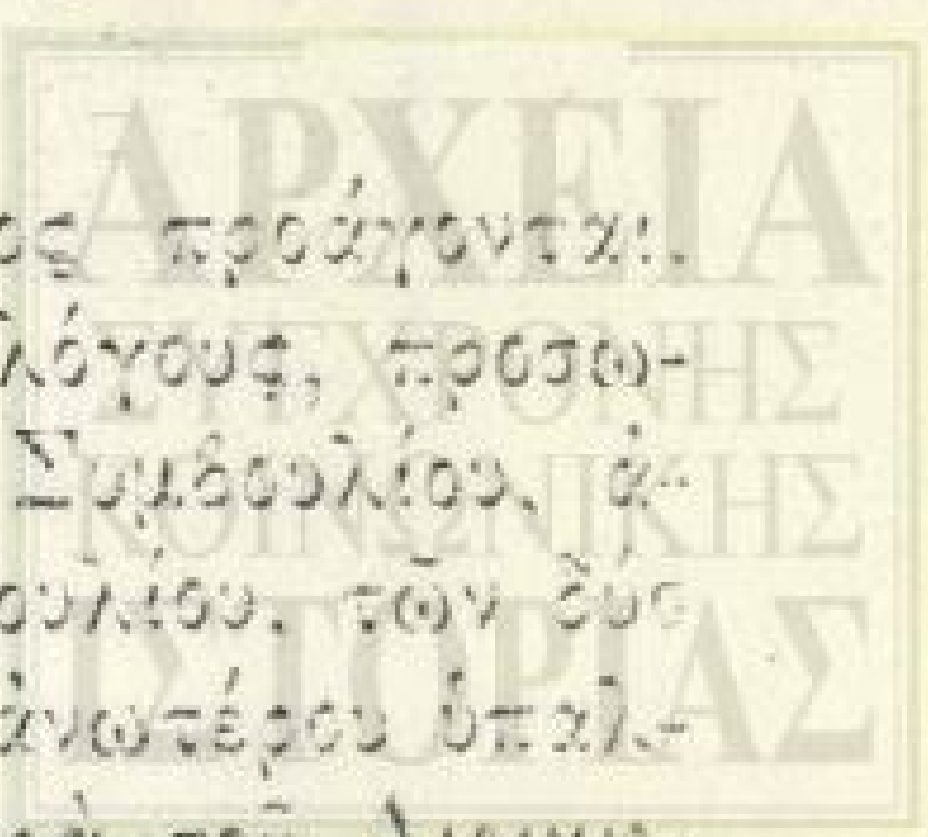 ΑΡΧΕΙΑ
ΣΥΓΧΡΟΝΗΣ
ΚΟΙΝΩΝΙΚΗΣ
ΙΣΤΟΡΙΑΣ
ος προάγονται.
λόγους, προσω-
Συμβουλίου, ἀ-
ουλίου, τῶν δύο
ἀνωτέρου ὑπαλ-